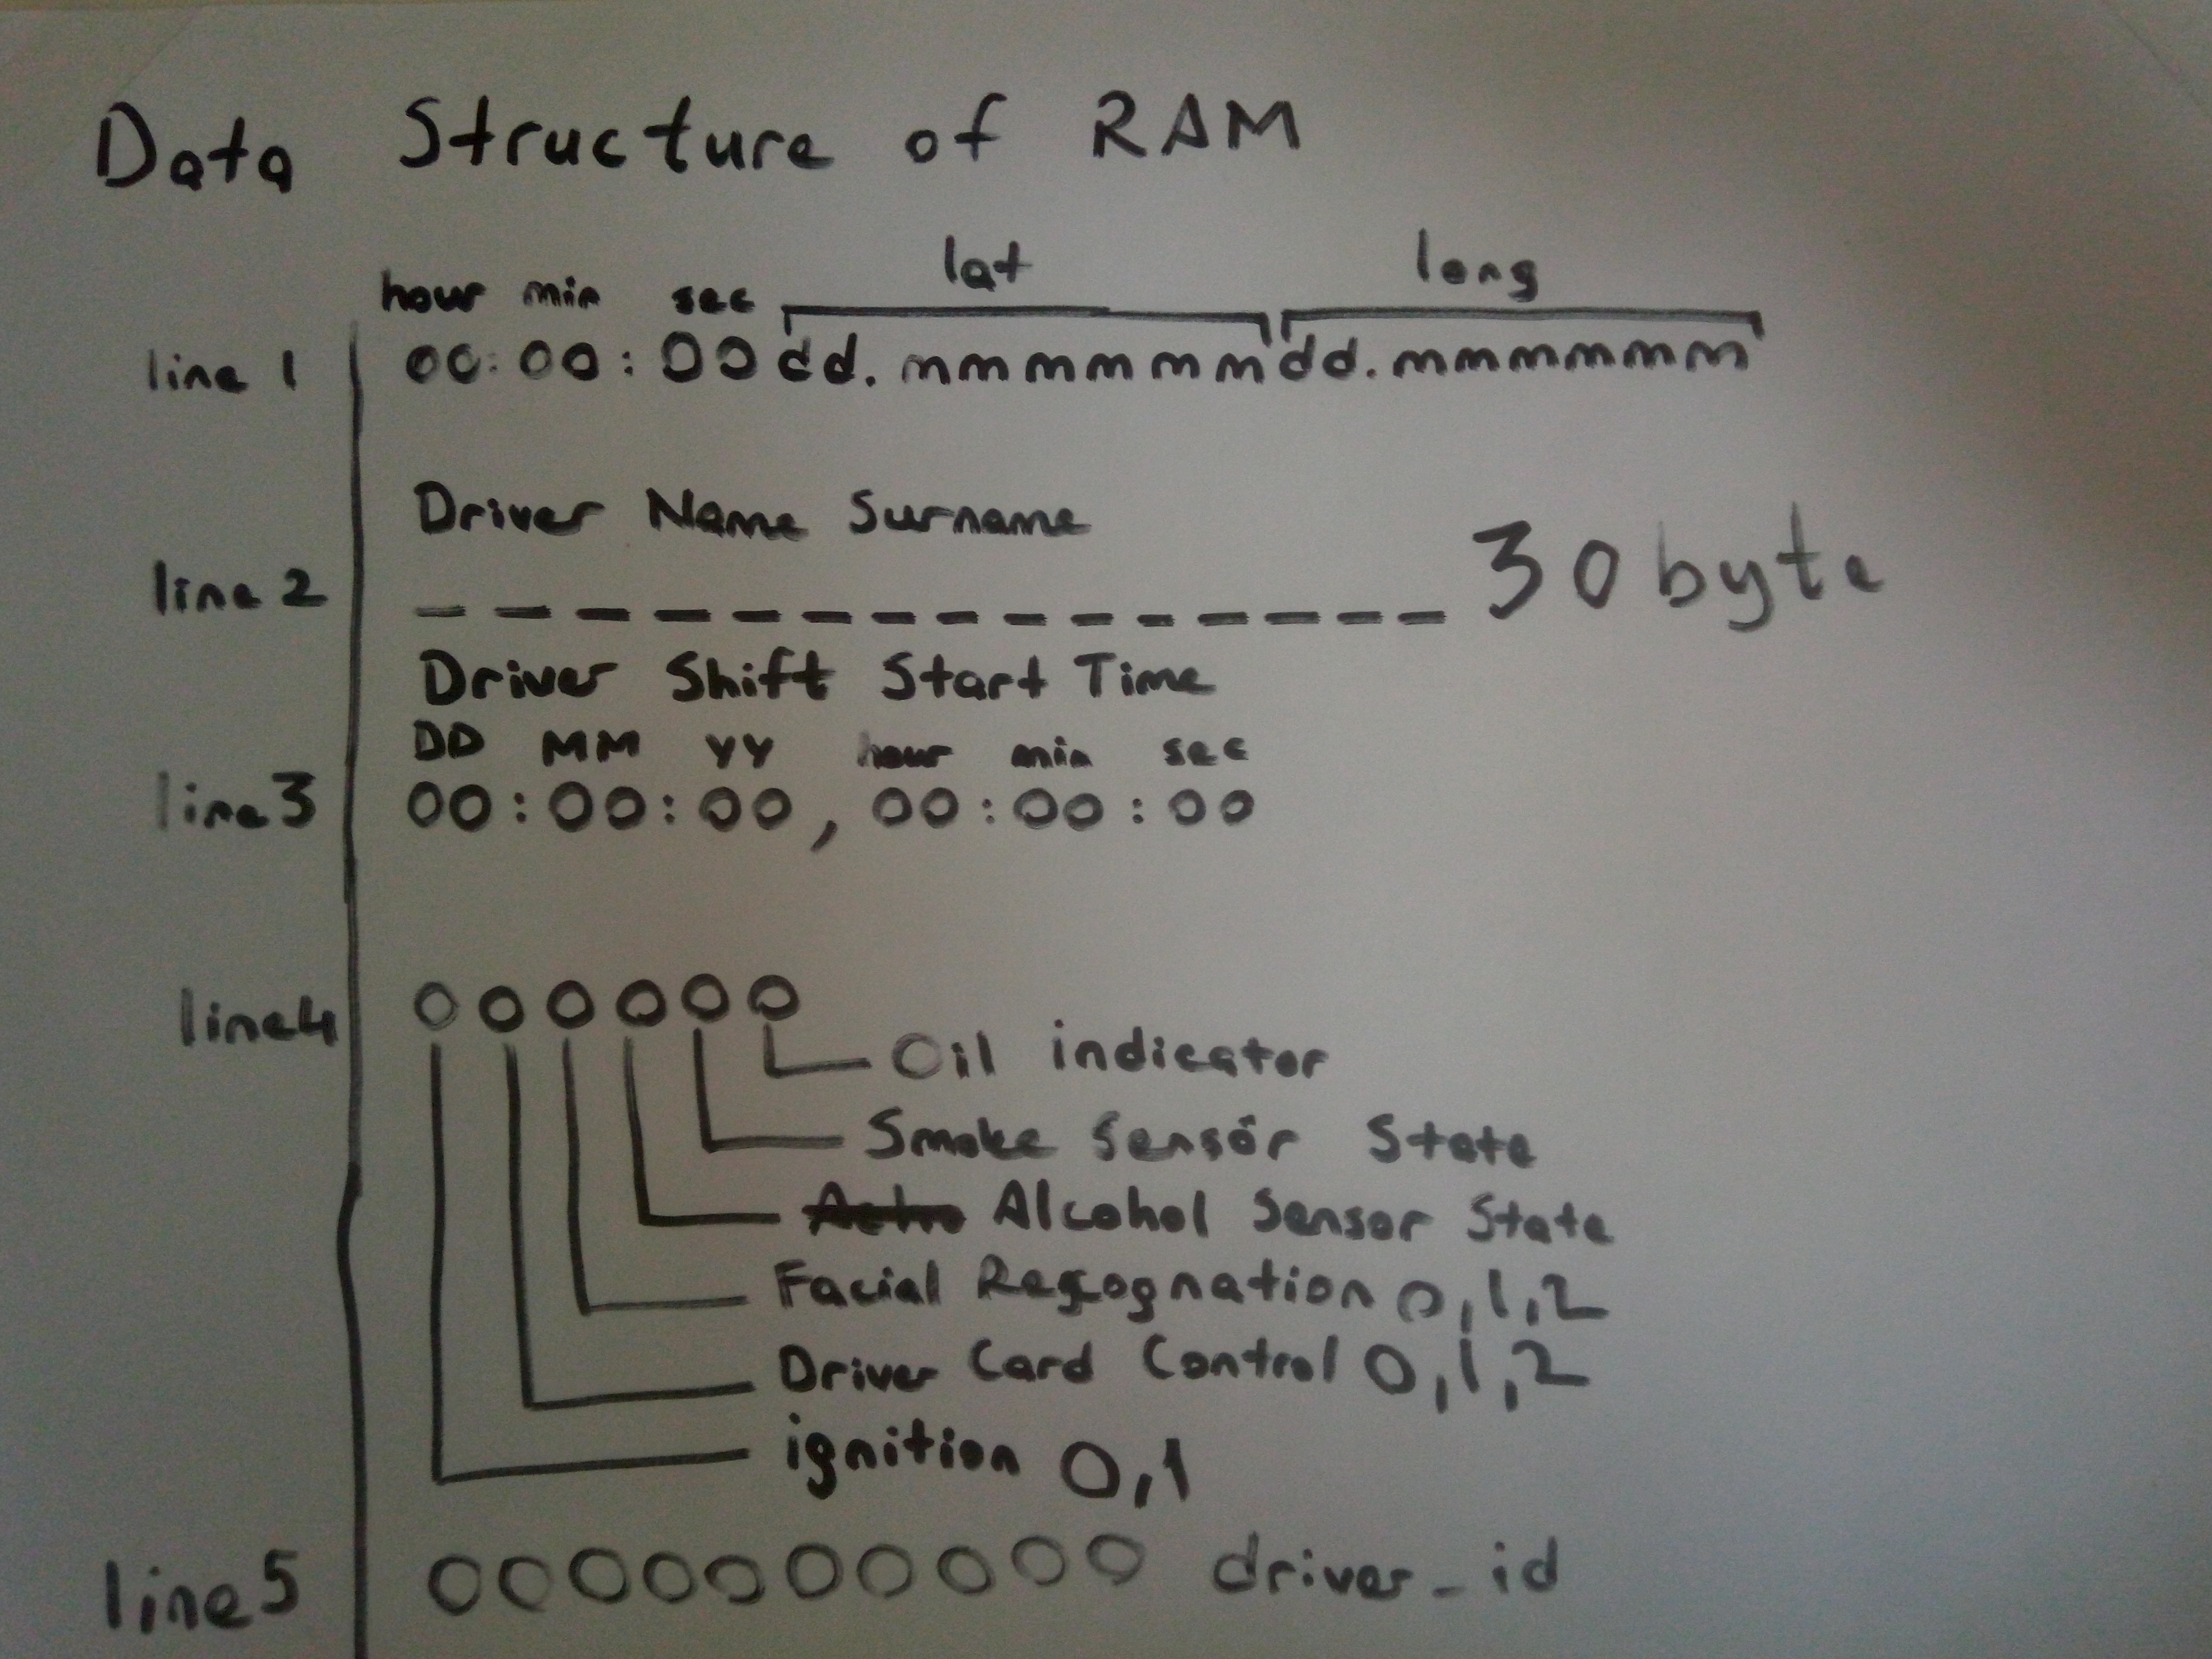 Data Structure of RAM
lat long
hour min sec
line 1 00:00:00dd.mmmmmmdd.mmmmmm
Driver Name Surname
line 2 _ _ _ _ _ _ _ _ _ _ _ _ _ _ 30 byte
Driver Shift Start Time
DD MM YY hour min sec
line 3 00:00:00, 00:00:00
line 4 0 0 0 0 0 0
Oil indicator
Smoke Sensör State
Alcohol Sensor State
Facial Recognation 0,1,2
Driver Card Control 0,1,2
ignition 0,1
line 5 0000000000 driver_id